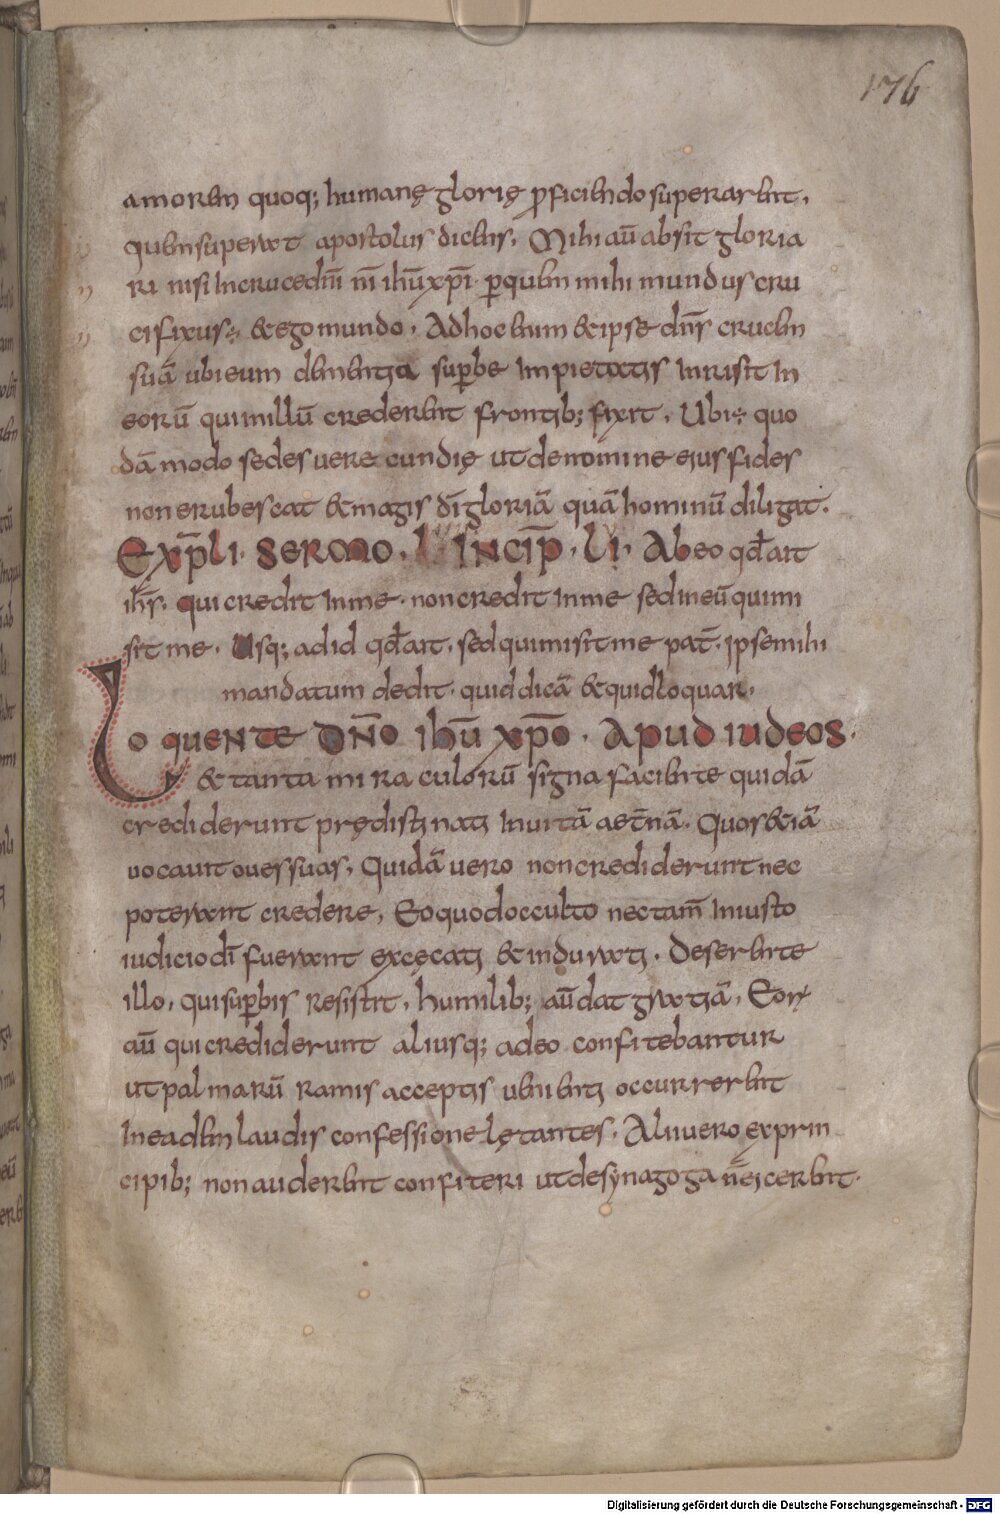 176
amorem quoq; humanę glorię ꝓficiendo superarent.
quem superat apostolus dicens. Mihi aū absit gloria
ri nisi in cruce dn̄i nr̄i ihū xp̄i ꝑ quem mihi mundus cru
cifixus ÷ & ego mundo. Ad hoc enim & ipse dn̄s crucem
suā ubi eum dementia suꝑbe impietatis inrisit in
eorū qui in illū crederent frontib; fixit. Ubi ÷ quo
dā modo sedes uerecundię ut de nomine eius fides
non erubescat & magis dī gloriā quā hominū diligat.
Exp̄ li. sermo. Incip̄. li. Ab eo qd̄ ait
ih̄s. qui credit in me. non credit in me sed in eū qui mi
sit me. Usq; ad id qd̄ ait. sed qui misit me pat̄. ipse mihi
mandatum dedit. quid dicā & quid loquar.
Loquente dn̄o ihū xp̄o. apud iudeos.
& tanta miraculorū signa faciente quidā
crediderunt prędistinati in uitā aet̄nā. Quos & iā
uocauit oues suas. Quidā uero non crediderunt nec
poterant credere. Eo quod occulto nec tam̄ iniusto
iudicio dī fuerant excęcati & indurati. Deserente
illo. qui suꝑbis resistit. humilib; aū dat gratiā. Eoꝝ
aū qui crediderunt alii usq; adeo confitebantur
ut palmarū ramis acceptis uenienti occurrerent
in eadem laudis confessione lętantes. Alii uero ex prin
cipib; non auderent confiteri ut de synagoga n̄ eicerent.
Digitalisierung gefördert durch die Deutsche Forschungsgemeinschaft - DFG